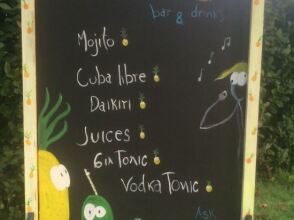 bar & drinks
Mojito
Cuba libre
Daikiri
Juices
Gin Tonic
Vodka Tonic
Ask